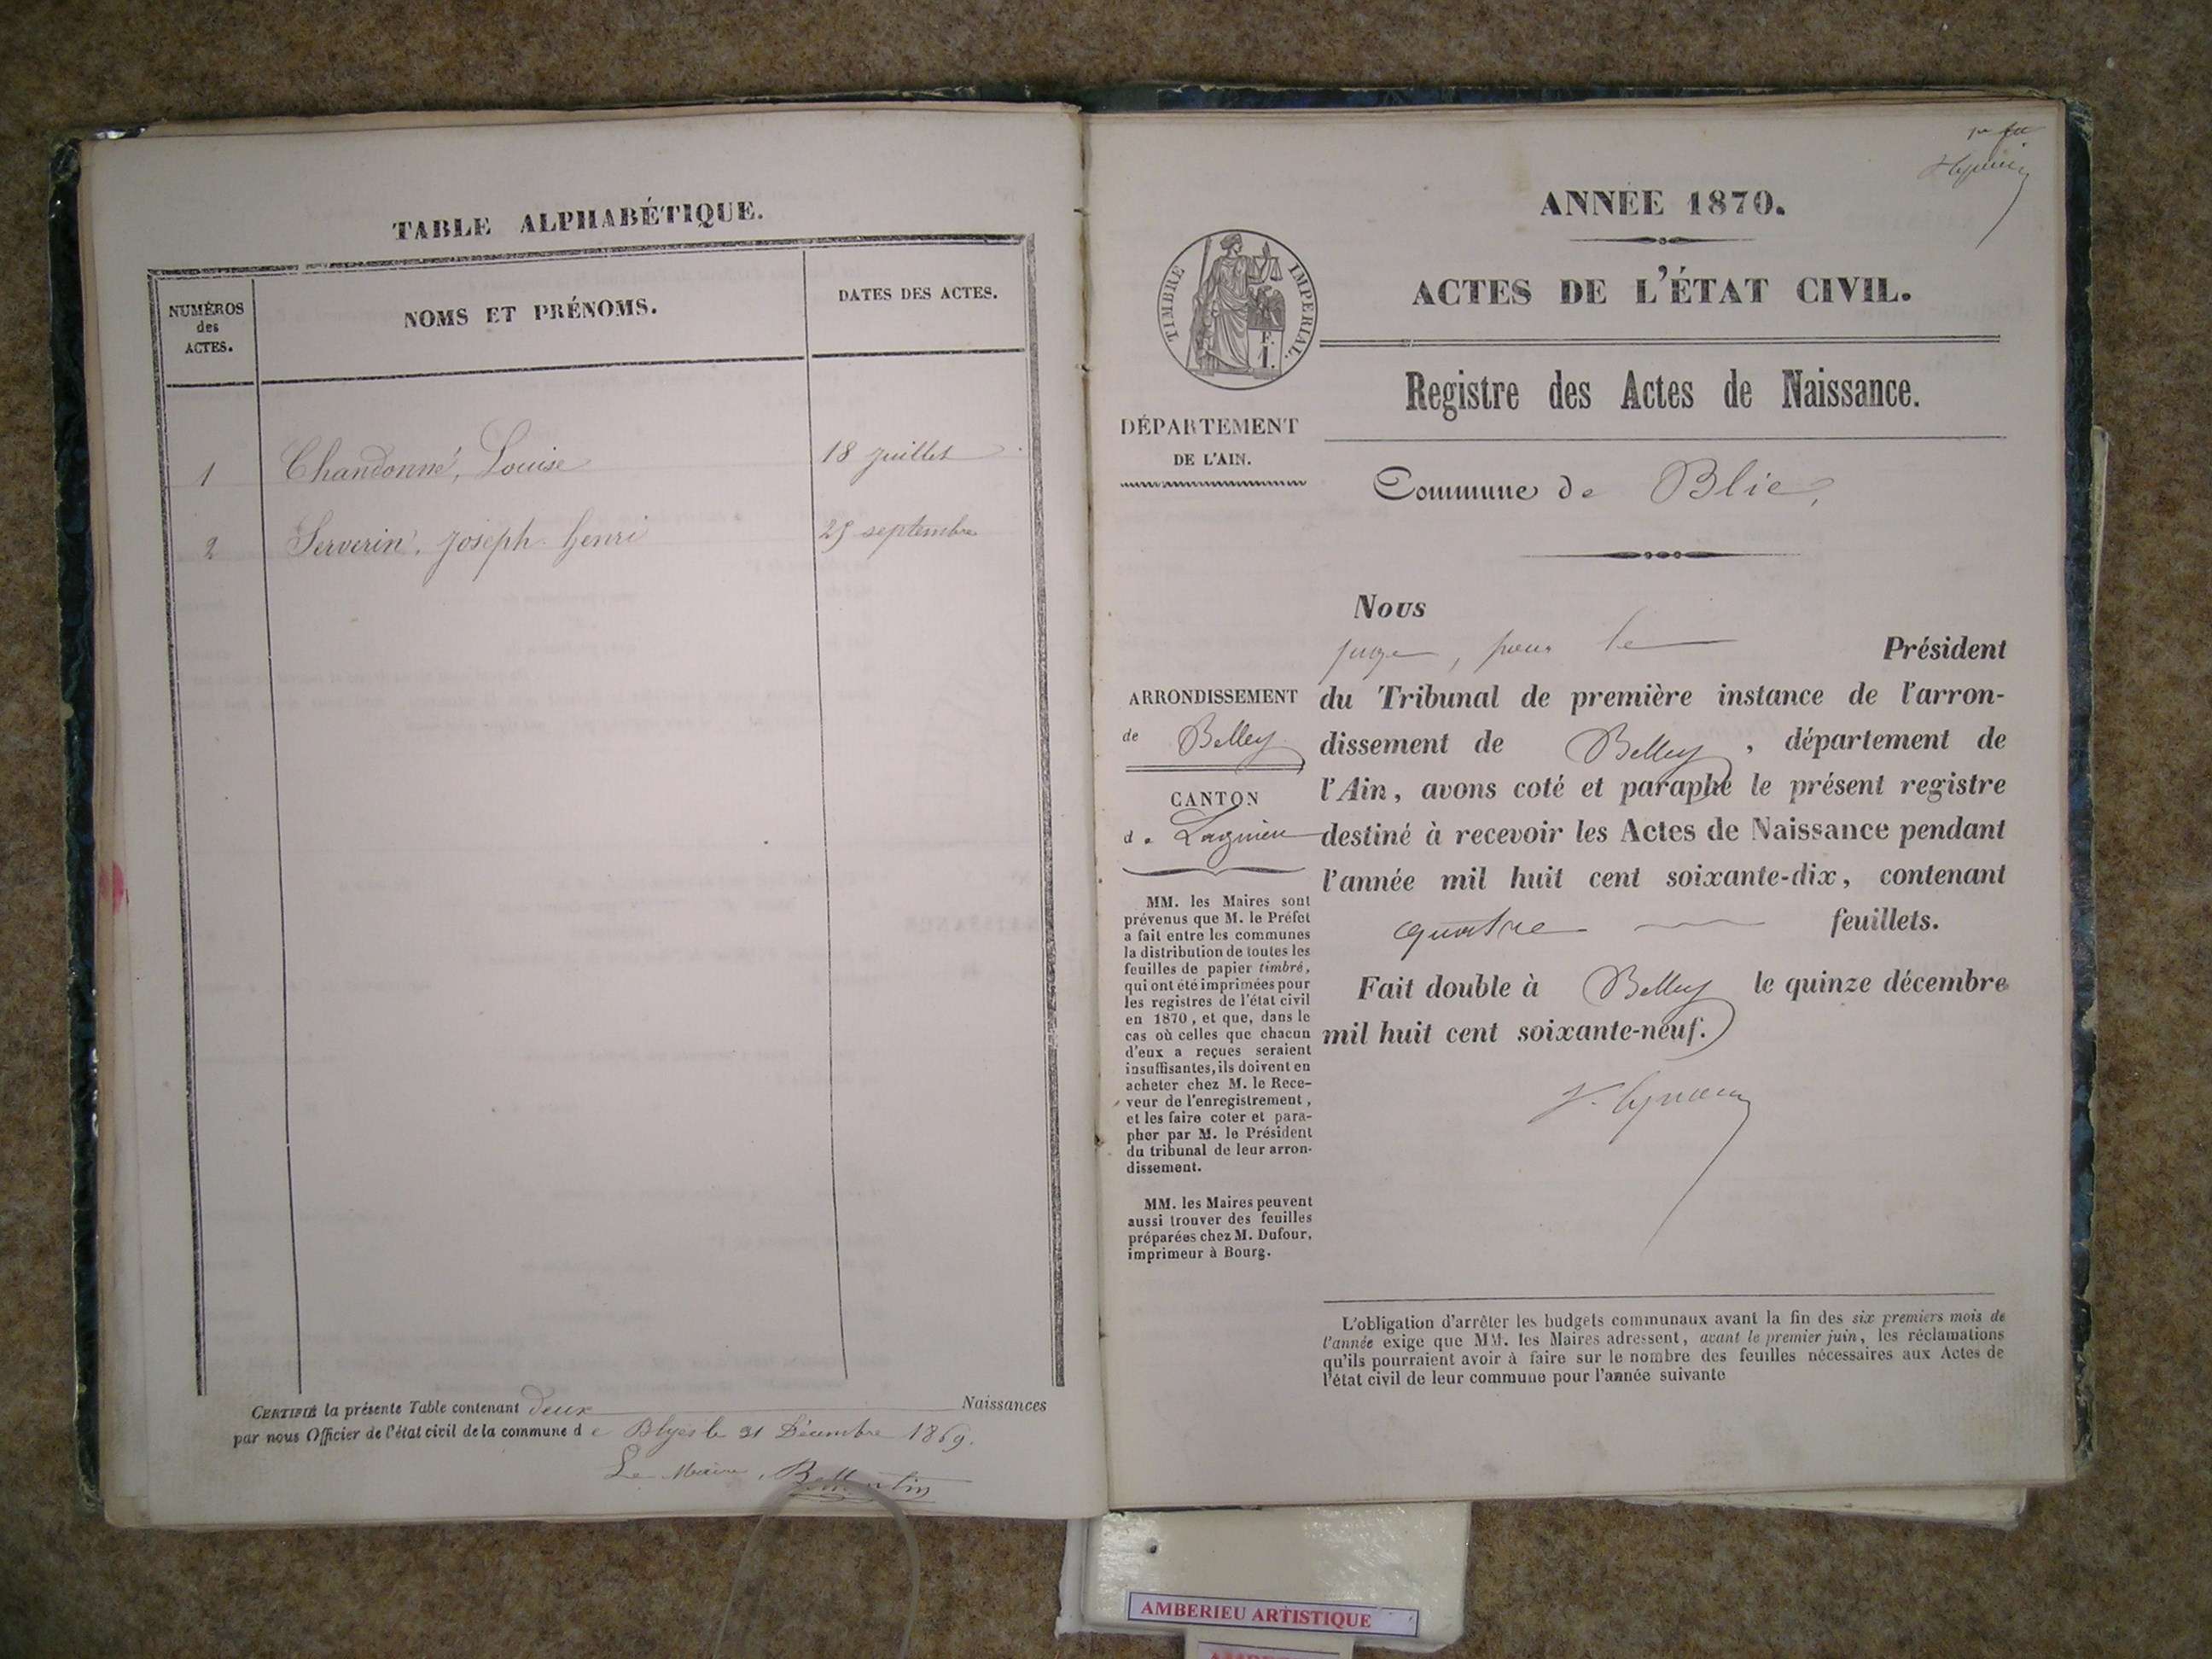 TABLE ALPHABÉTIQUE.
NUMÉROS
des
ACTES.
NOMS ET PRÉNOMS.
DATES DES ACTES.
1 Chandonné, Louise 18 juillet
2 Serverin, Joseph henri septembre
CERTIFIÉ la présente Table contenant deux Naissances
par nous Officier de l'état civil de la commune de Blyes le 31 Décembre 1869.
Le Maire,
ANNÉE 1870.
ACTES DE L'ÉTAT CIVIL.
TIMBRE IMPERIAL.
F.
1.
Registre des Actes de Naissance.
DÉPARTEMENT
DE L'AIN.
Commune de Blie,
ARRONDISSEMENT
de Belley
CANTON
de Lagnieu
MM. les Maires sont
prévenus que M. le Préfet
a fait entre les communes
la distribution de toutes les
feuilles de papier timbré,
qui ont été imprimées pour
les registres de l'état civil
en 1870, et que, dans le
cas où celles que chacun
d'eux a reçues seraient
insuffisantes, ils doivent en
acheter chez M. le Rece-
veur de l'enregistrement,
et les faire coter et para-
pher par M. le Président
du tribunal de leur arron-
dissement.
MM. les Maires peuvent
aussi trouver des feuilles
préparées chez M. Dufour,
imprimeur à Bourg.
Nous
juge, pour le Président
du Tribunal de première instance de l'arron-
dissement de Belley, département de
l'Ain, avons coté et paraphé le présent registre
destiné à recevoir les Actes de Naissance pendant
l'année mil huit cent soixante-dix, contenant
quatre feuillets.
Fait double à Belley le quinze décembre
mil huit cent soixante-neuf.
L'obligation d'arrêter les budgets communaux avant la fin des six premiers mois de
l'année exige que MM. les Maires adressent, avant le premier juin, les réclamations
qu'ils pourraient avoir à faire sur le nombre des feuilles nécessaires aux Actes de
l'état civil de leur commune pour l'année suivante
AMBERIEU ARTISTIQUE